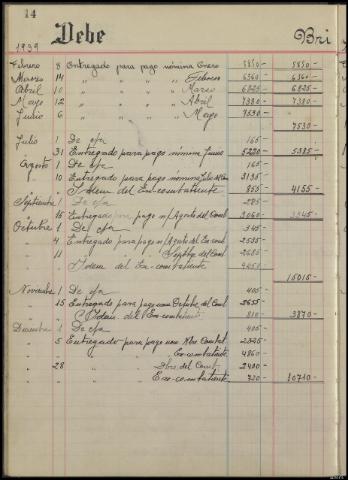 14
Debe
Bri
1939
Febrero 8 Entregado para pago nómina Enero 5850- 5850-
Marzo 14 " " " " Febrero 6360- 6360-
Abril 10 " " " " Marzo 6825- 6825-
Mayo 12 " " " " Abril 7380- 7380-
Junio 6 " " " " Mayo 7530-
7530-
Julio 1 De cja 165-
" 31 Entregado para pago nómina Junio 5220- 5385-
Agosto 1 De cja 165-
" 10 Entregado para pago nómina Julio del 3135-
" " Idem del Ex-combatiente 855- 4155-
Septiembre 1 De cja 285-
" 15 Entregado para pago n/ Agosto del Comb 3060- 3345-
Octubre 1 De cja 345-
" 4 Entregado para pago n/ Agosto del Ex-comb 2535-
" 11 " " " Septbre del Comb 2685-
" Idem del Ex-combatiente
15015-
Noviembre 1 De cja 405-
" 15 Entregado para pago Octubre del Comb 2655-
" Idem del Ex-combatiente 810- 3870-
Diciembre 1 De cja 405-
" 5 Entregado para pago Nbre Combat 2325-
" " " Ex-combatiente 4860-
" 28 " " Dbre del Combt 2400-
" " Exo-combatiente 720- 10710-